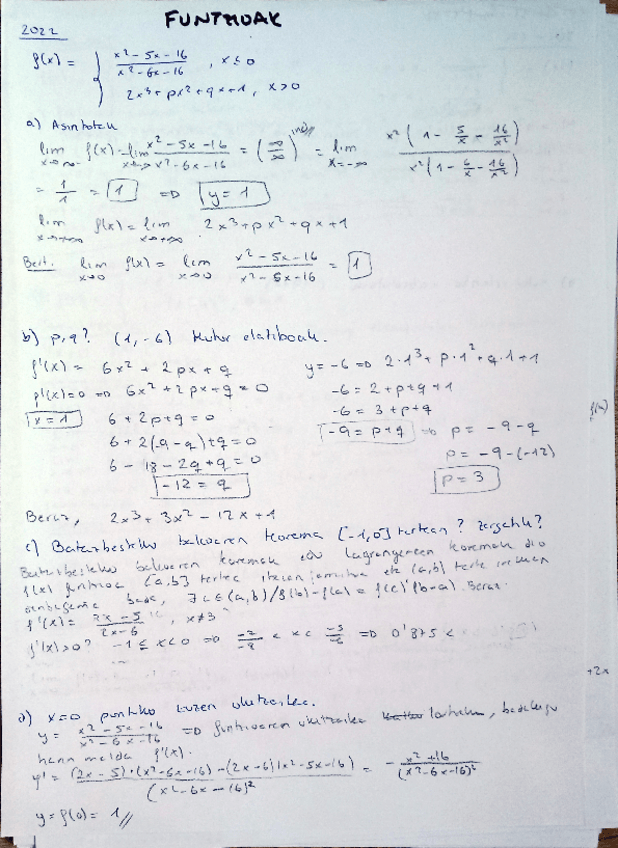 FUNTZIOAK
2022
f(x) = { x² - 5x - 16 / x² - 6x - 16 , x ≤ 0
2x³ + px² + qx + 1, x > 0
a) Asintotak
lim x→-∞ f(x) = lim x→-∞ x² - 5x - 16 / x² - 6x - 16 = (∞/∞) ind = lim x→-∞ x²(1 - 5/x - 16/x²) / x²(1 - 6/x - 16/x²)
= 1/1 = 1 ⇒ y = 1
lim x→+∞ f(x) = lim x→+∞ 2x³ + px² + qx + 1
Bert. lim x→0 f(x) = lim x→0 x² - 5x - 16 / x² - 6x - 16 = 1
b) p, q? (1, -6) mutur erlatiboak.
f'(x) = 6x² + 2px + q
y = -6 ⇒ 2·1³ + p·1² + q·1 + 1
f'(x) = 0 ⇒ 6x² + 2px + q = 0
-6 = 2 + p + q + 1
x = 1 6 + 2p + q = 0
-6 = 3 + p + q
6 + 2(-9 - q) + q = 0
-9 = p + q ⇒ p = -9 - q
6 - 18 - 2q + q = 0
p = -9 - (-12)
-12 = q
p = 3
Beraz, 2x³ + 3x² - 12x + 1
c) Batezbesteko balioaren teorema [-1,0] tartean? zergatik?
Batezbesteko balioaren teoremak edo Lagrangeren teoremak dio
f(x) funtzioa [a,b] tartea jarraitua eta (a,b) tarte irekian
bada, ∃ c ∈ (a,b) / f(b) - f(a) = f'(c)(b-a). Beraz:
f'(x) = 2x - 5 / 2x - 6 , x ≠ 3
f'(x) > 0? -1 ≤ x < 0 ⇒ -7/-8 < x < -5/-6 ⇒ 0'875 <
d) x=0 puntuko zuzen ukitzailea.
y = x² - 5x - 16 / x² - 6x - 16 ⇒ funtzioaren ukitzailea lortzeko, badakigu
haren malda f'(x).
y' = (2x - 5)·(x² - 6x - 16) - (2x - 6)(x² - 5x - 16) / (x² - 6x - 16)² = - x² + 16 / (x² - 6x - 16)²
y = f(0) = 1 //
f(x)
+2x